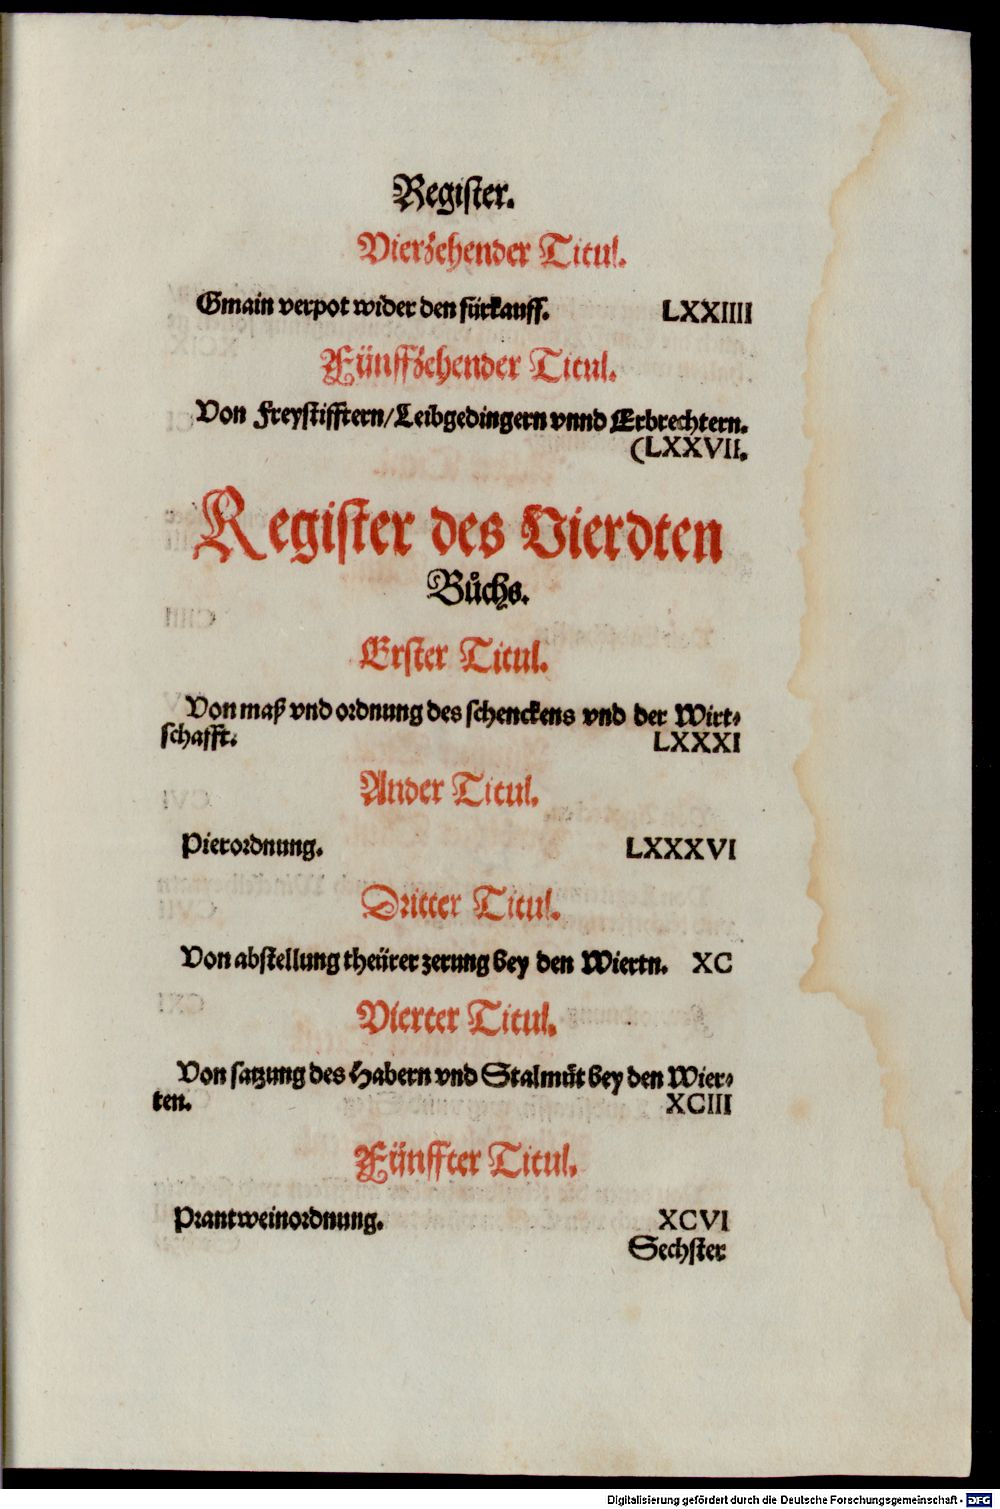 Register.
Vierzehender Titul.
Gmain verpot wider den fürkauff. LXXIIII
Fünffzehender Titul.
Von Freystifftern/Leibgedingern vnnd Erbrechtern.
(LXXVII.
Register des Vierdten
Bůchs.
Erster Titul.
Von maß vnd ordnung des schenckens vnd der Wirt⸗
schafft. LXXXI
Ander Titul.
Pierordnung. LXXXVI
Dritter Titul.
Von abstellung theürer zerung bey den Wiertn. XC
Vierter Titul.
Von satzung des Habern vnd Stalmüt bey den Wier⸗
ten. XCIII
Fünffter Titul.
Prantweinordnung. XCVI
Sechster
Digitalisierung gefördert durch die Deutsche Forschungsgemeinschaft - DFG